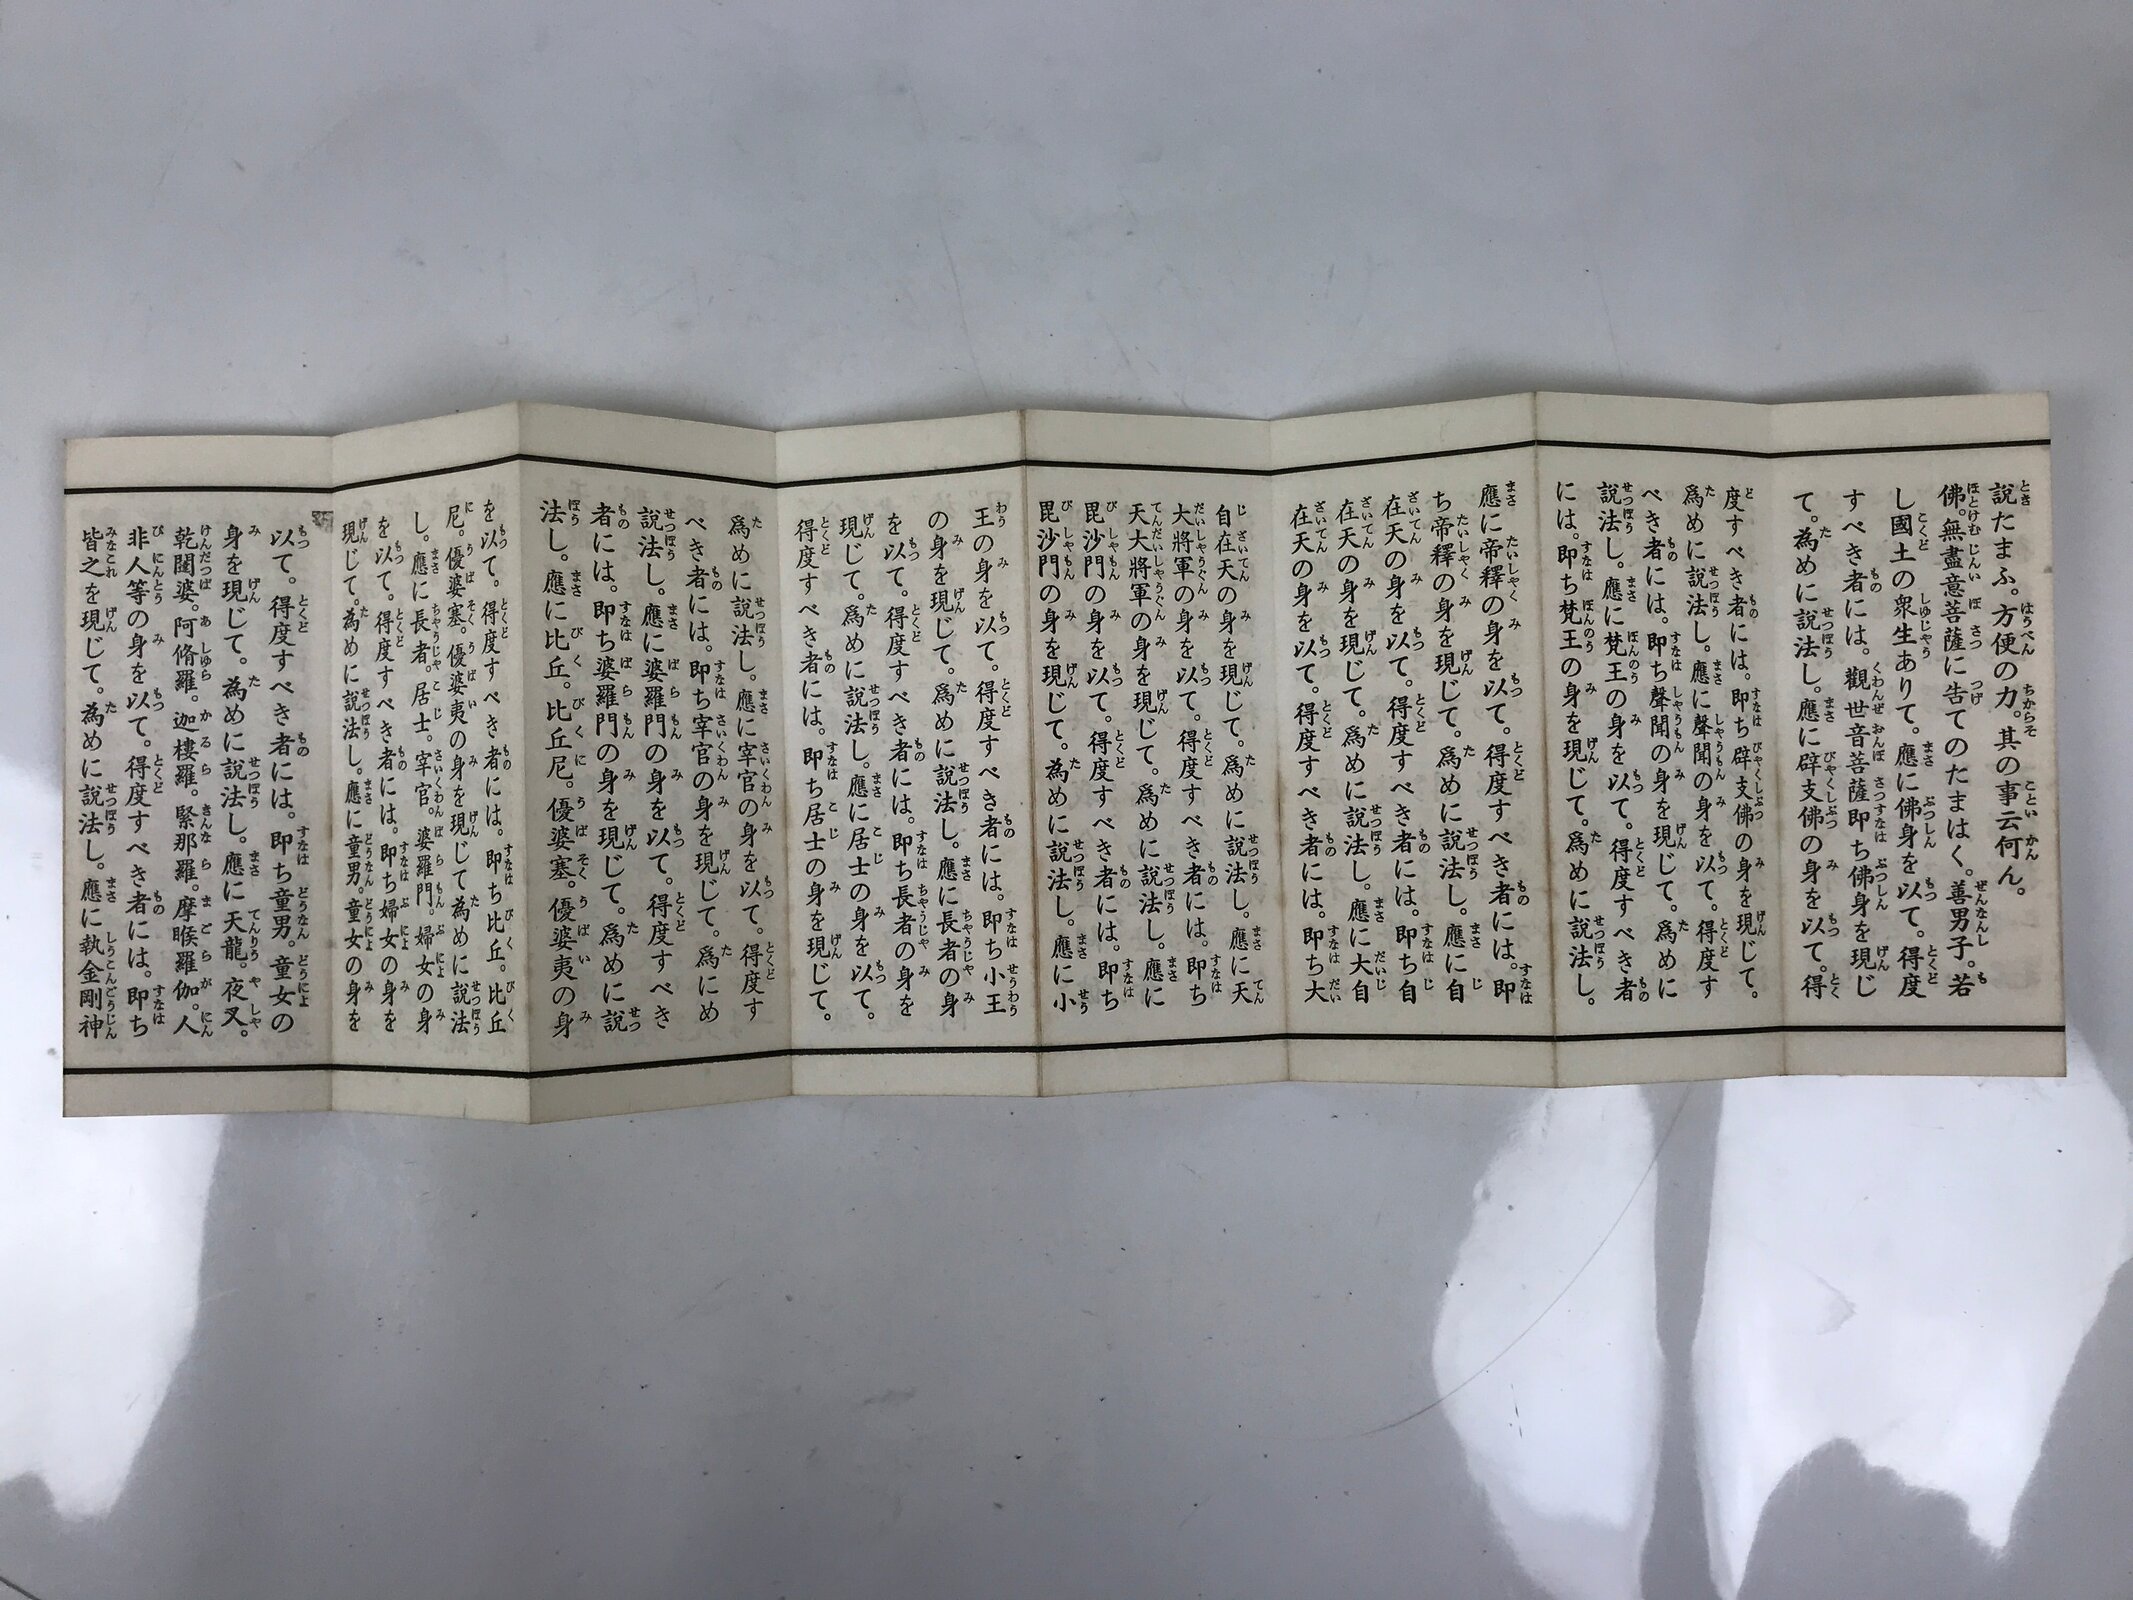 説たまふ。方便の力。其の事云何ん。
佛。無盡意菩薩に告てのたまはく。善男子。若
し國土の衆生ありて。應に佛身を以て。得度
すべき者には。觀世音菩薩即ち佛身を現じ
て。為めに説法し。應に辟支佛の身を以て。得
度すべき者には。即ち辟支佛の身を現じて。
爲めに説法し。應に聲聞の身を以て。得度す
べき者には。即ち聲聞の身を現じて。爲めに
説法し。應に梵王の身を以て。得度すべき者
には。即ち梵王の身を現じて。爲めに説法し。
應に帝釋の身を以て。得度すべき者には。即
ち帝釋の身を現じて。爲めに説法し。應に自
在天の身を以て。得度すべき者には。即ち自
在天の身を現じて。爲めに説法し。應に大自
在天の身を以て。得度すべき者には。即ち大
自在天の身を現じて。爲めに説法し。應に天
大將軍の身を以て。得度すべき者には。即ち
天大將軍の身を現じて。爲めに説法し。應に
毘沙門の身を以て。得度すべき者には。即ち
毘沙門の身を現じて。為めに説法し。應に小
王の身を以て。得度すべき者には。即ち小王
の身を現じて。爲めに説法し。應に長者の身
を以て。得度すべき者には。即ち長者の身を
現じて。爲めに説法し。應に居士の身を以て。
得度すべき者には。即ち居士の身を現じて。
爲めに説法し。應に宰官の身を以て。得度す
べき者には。即ち宰官の身を現じて。爲にめ
説法し。應に婆羅門の身を以て。得度すべき
者には。即ち婆羅門の身を現じて。爲めに説
法し。應に比丘。比丘尼。優婆塞。優婆夷の身
を以て。得度すべき者には。即ち比丘。比丘
尼。優婆塞。優婆夷の身を現じて為めに説法
し。應に長者。居士。宰官。婆羅門。婦女の身
を以て。得度すべき者には。即ち婦女の身を
現じて。為めに説法し。應に童男。童女の身を
以て。得度すべき者には。即ち童男。童女の
身を現じて。為めに説法し。應に天龍。夜叉。
乾闥婆。阿脩羅。迦樓羅。緊那羅。摩睺羅伽。人
非人等の身を以て。得度すべき者には。即ち
皆之を現じて。為めに説法し。應に執金剛神